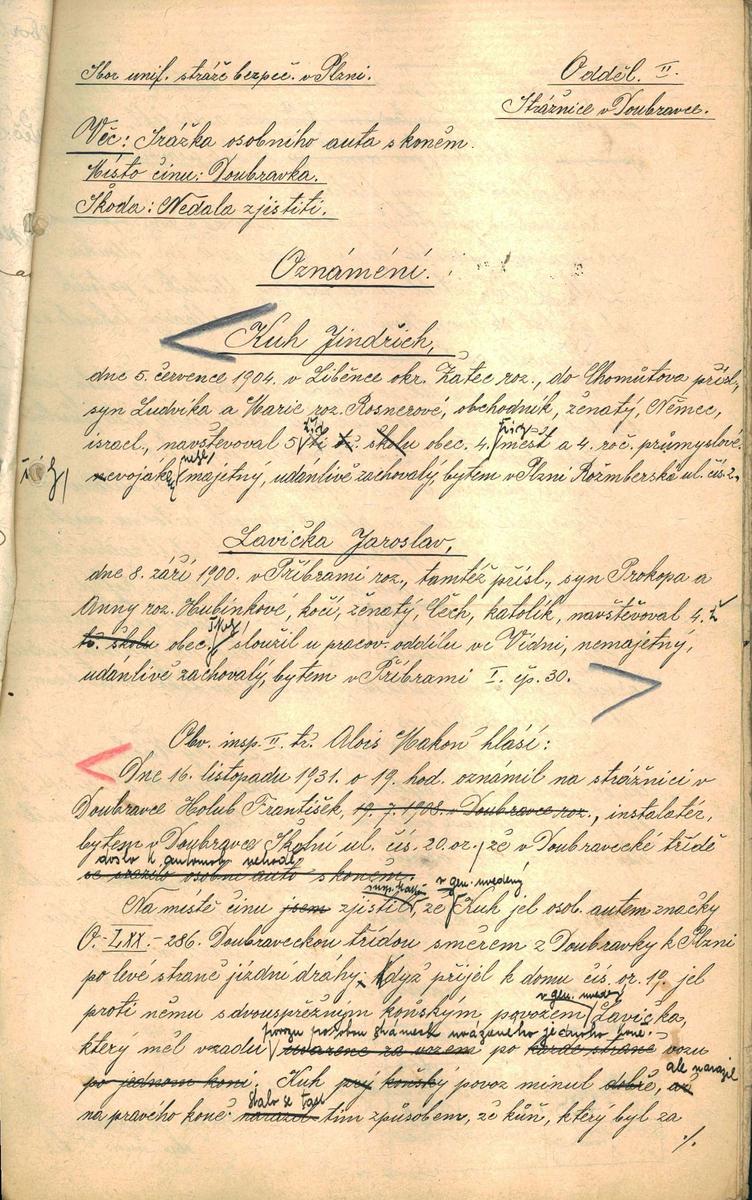 Sbor unif. stráže bezpeč. v Plzni.
Odděl. II.
Strážnice v Doubravce.
Věc: Srážka osobního auta s koněm.
Místo činu: Doubravka.
Škoda: Nedala zjistiti.
Oznámení.
Kuh Jindřich,
dne 5. července 1904 v Liběnce okr. Žatec roz., do Chomutova přísl.,
syn Ludvíka a Marie roz. Rosnerové, obchodník, ženatý, Němec,
israel., navštěvoval 5 tř. školu obec. 4. měšť a 4. roč. průmyslové.
nevoják, majetný, udánlivě zachovalý, bytem v Plzni Rožmberská ul. čís. 2.
Lavička Jaroslav,
dne 8. září 1900 v Příbrami roz., tamtéž přísl., syn Prokopa a
Anny roz. Hubínkové, kočí, ženatý, Čech, katolík, navštěvoval 4.
tř. školu obec. sloužil u pracov. oddílu ve Vídni, nemajetný,
udánlivě zachovalý, bytem v Příbrami I. čp. 30.
Obv. insp. II. tř. Alois Makoň hlásí:
Dne 16. listopadu 1931 o 19. hod. oznámil na strážnici v
Doubravce Holub František, 19. 7. 1908 v Doubravce roz., instalatér,
bytem v Doubravce Školní ul. čís. 20. or., že v Doubravecké třídě
došlo k automob. nehodě
se srazilo osobní auto s koněm.
v gen. uvedený
Na místě činu jsem zjistil, že Kuh jel osob. autem značky
O.-LXX.-286. Doubraveckou třídou směrem z Doubravky k Plzni
po levé straně jízdní dráhy. Když přijel k domu čís. or. 19. jel
v gen. uved.
proti němu s dvouspřežným koňským povozem Lavička,
povozu po obou stranách uvázaného jednoho koně.
který měl vzadu uvázené za vozem po každé straně vozu
ale narazil
po jednom koni. Kuh prý koňský povoz minul dobře, až
stalo se tak
na pravého koně narazil tím způsobem, že kůň, který byl za
./.